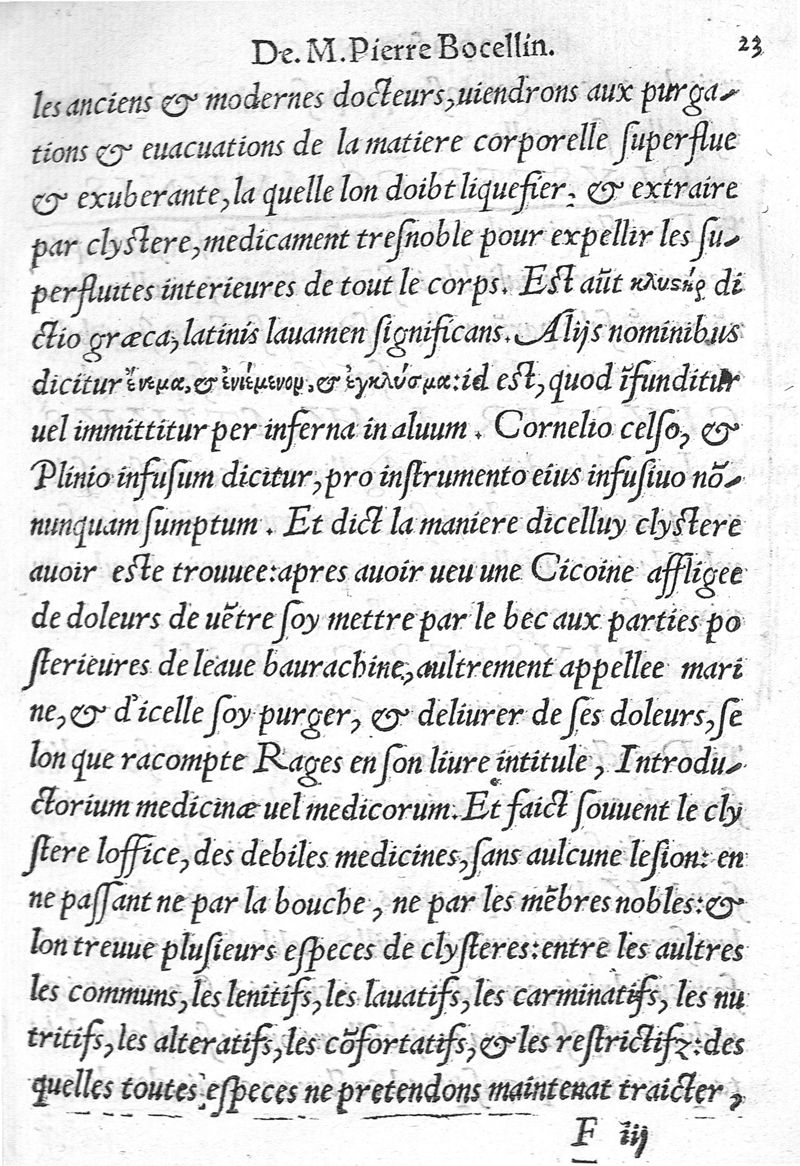 De. M. Pierre Bocellin. 23
les anciens & modernes docteurs, uiendrons aux purga-
tions & euacuations de la matiere corporelle ſuperflue
& exuberante, la quelle lon doibt liquefier, & extraire
par clyſtere, medicament treſnoble pour expellir les ſu-
perfluites interieures de tout le corps. Eſt aũt κλυςήρ di
ctio græca, latinis lauamen ſignificans. Alijs nominibus
dicitur ἔνεμα, & ἐνιέμενον, & ἐγκλύσμα: id eſt, quod ĩfunditur
uel immittitur per inferna in aluum. Cornelio celſo, &
Plinio infuſum dicitur, pro inſtrumento eius infuſiuo nõ-
nunquam ſumptum. Et dict la maniere dicelluy clyſtere
auoir eſte trouuee: apres auoir ueu une Cicoine affligee
de doleurs de uẽtre ſoy mettre par le bec aux parties po
ſterieures de leaue baurachine, aultrement appellee mari
ne, & d'icelle ſoy purger, & deliurer de ſes doleurs, ſe
lon que racompte Rages en ſon liure intitule, Introdu-
ctorium medicinæ uel medicorum. Et faict ſouuent le cly
ſtere loffice, des debiles medicines, ſans aulcune leſion: en
ne paſſant ne par la bouche, ne par les mẽbres nobles: &
lon treuue pluſieurs eſpeces de clyſteres: entre les aultres
les communs, les lenitifs, les lauatifs, les carminatifs, les nu
tritifs, les alteratifs, les cõfortatifs, & les reſtrictifz: des
quelles toutes eſpeces ne pretendons maintenat traicter,
F iij